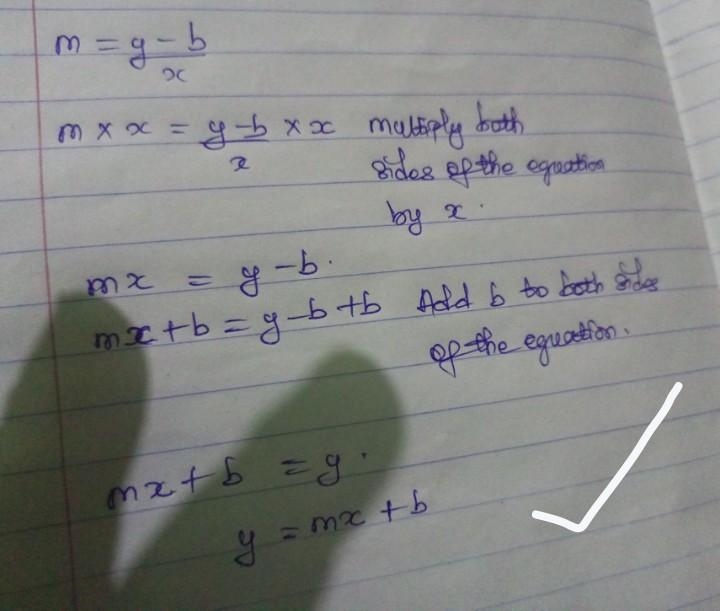 m = y - b
x
m × x = y - b × x multiply both
x
sides of the equation
by x.
mx = y - b.
mx + b = y - b + b Add b to both sides
of the equation.
mx + b = y.
y = mx + b